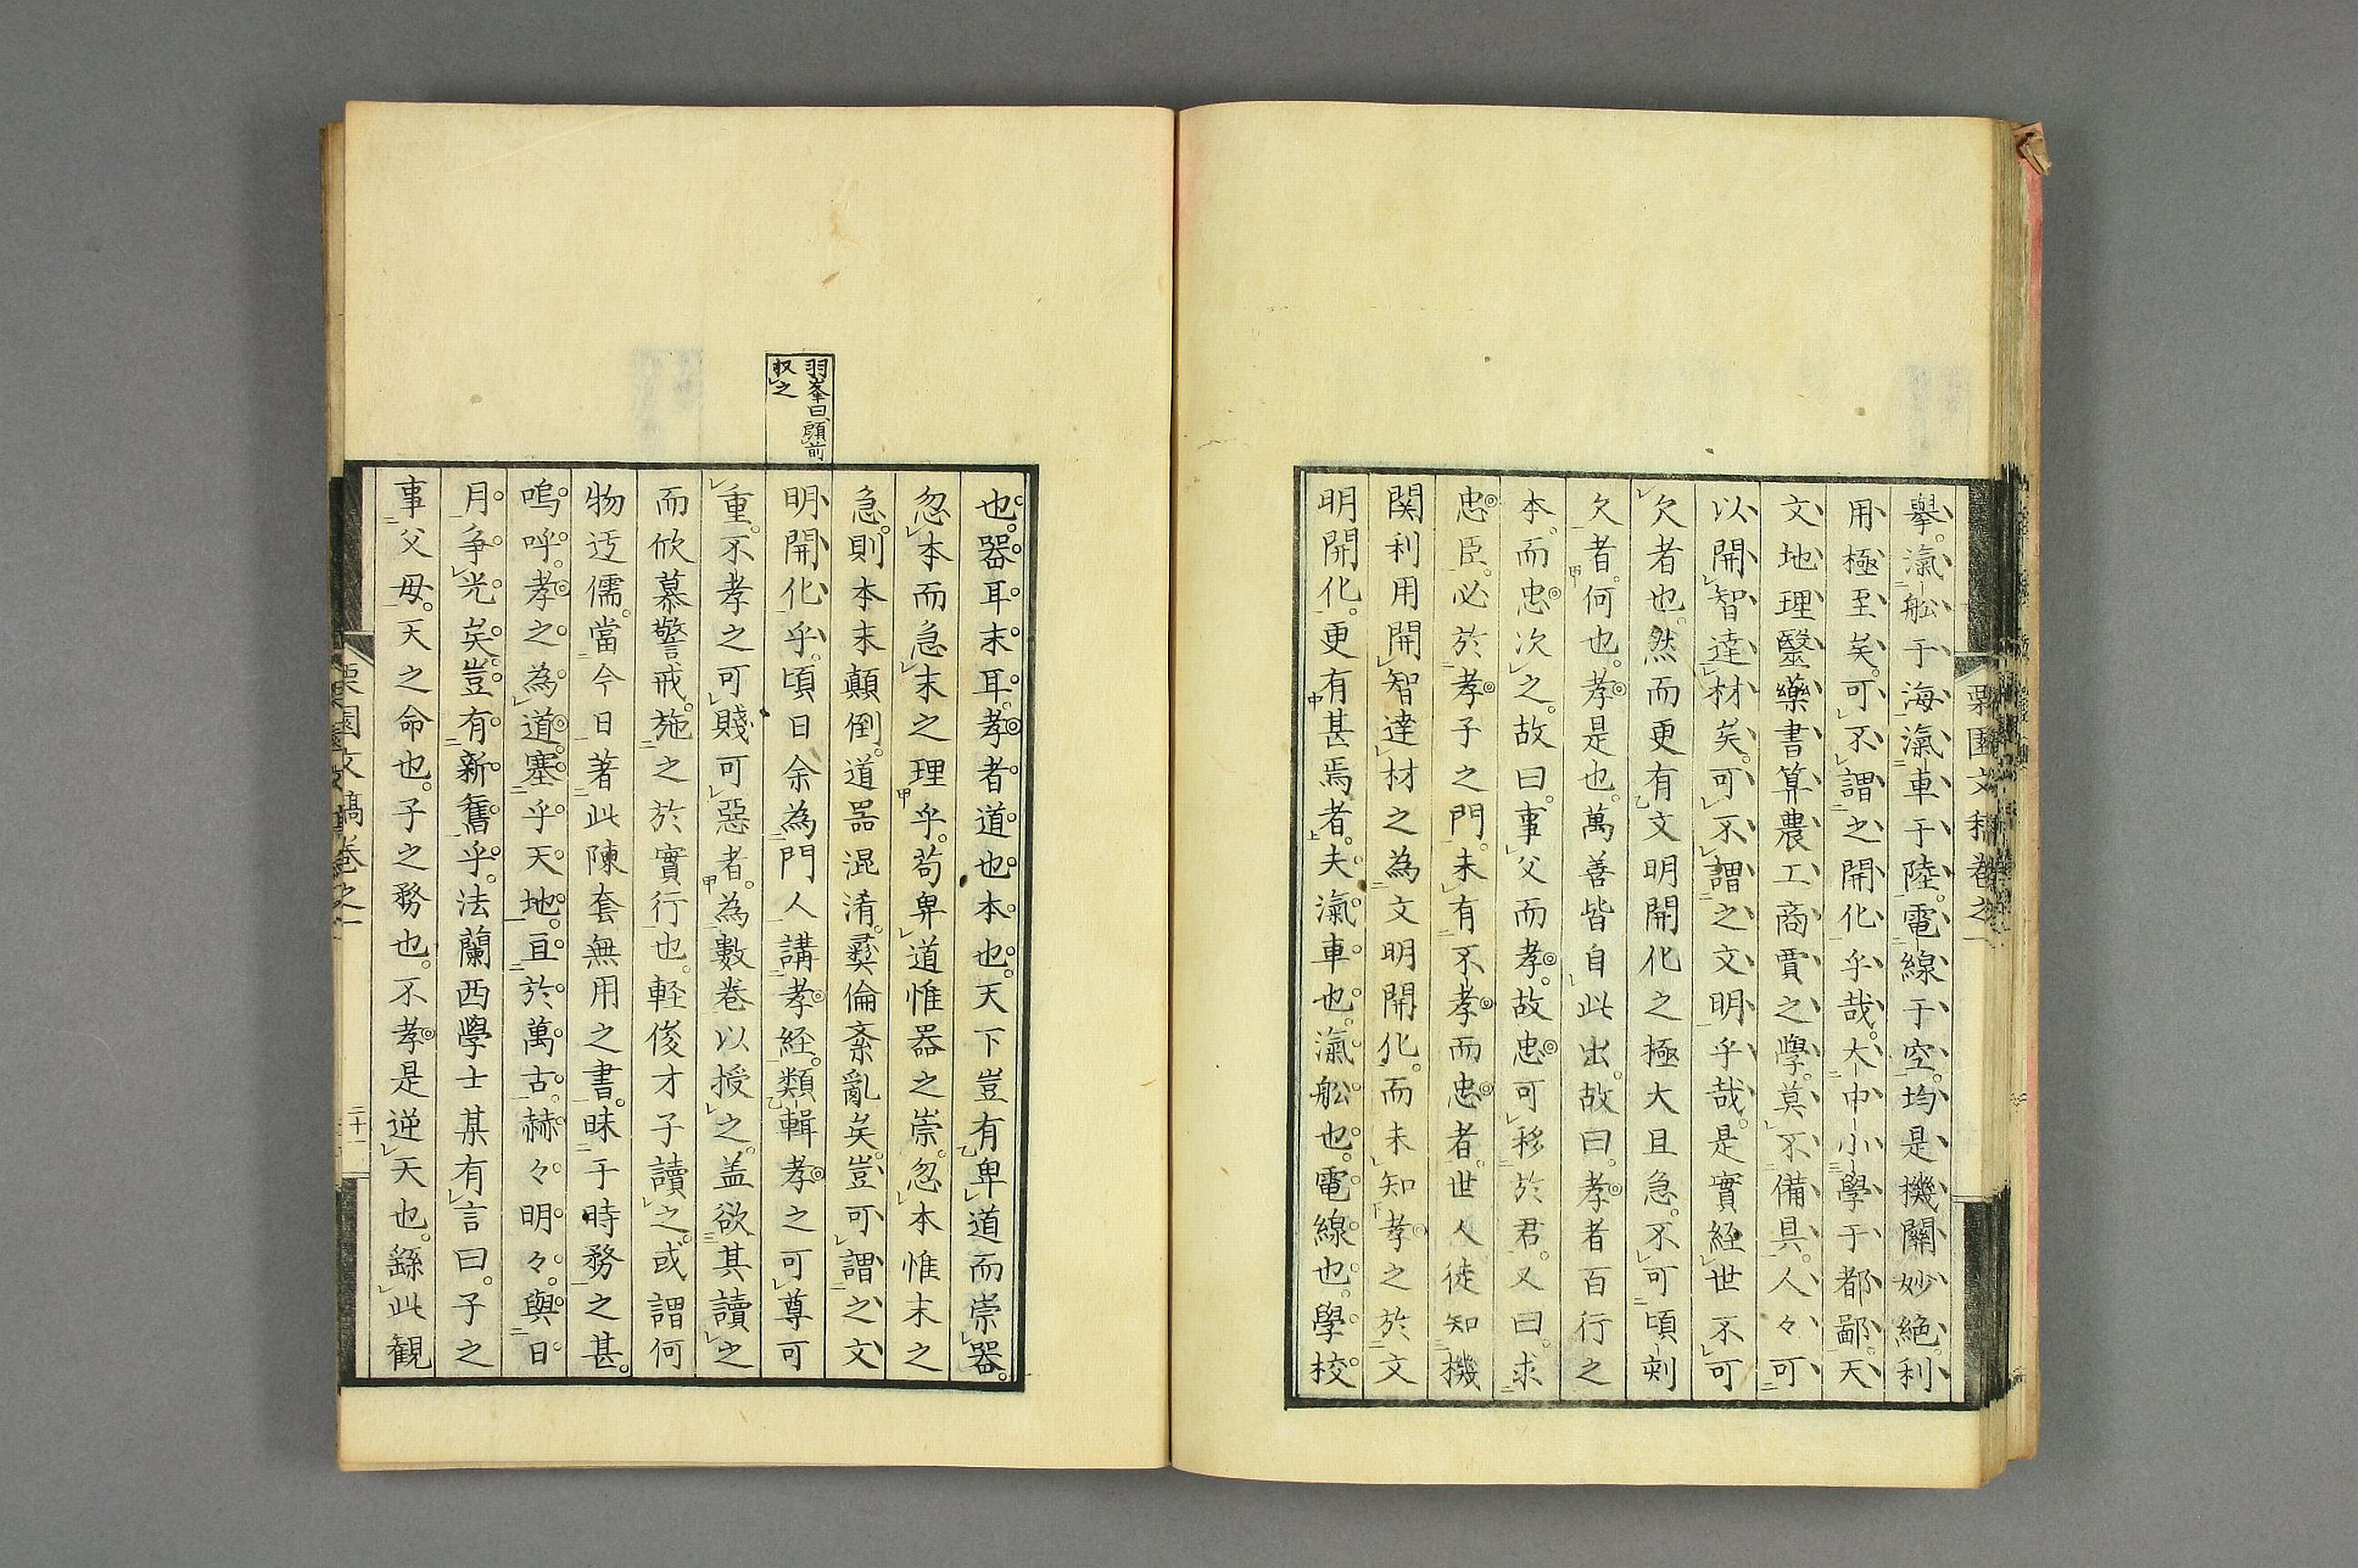 栗園文稿卷之一
擧。瀛舩于海瀛車于陸。電線于空。均是機關妙絶。利
用極至矣。可不謂之開化乎哉。大中小學于都鄙。天
文地理醫藥書算農工商賈之學。莫不備具。人々可
以開智達材矣。可不謂之文明乎哉。是實経世不可
欠者也。然而更有文明開化之極大且急。不可頃刻
欠者。何也。孝是也。萬善皆自此出。故曰。孝者百行之
本。而忠次之。故曰。事父而孝。故忠可移於君。又曰。求
忠臣。必於孝子之門。未有不孝而忠者。世人徒知機
関利用開智達材之為文明開化。而未知孝之於文
明開化。更有甚焉者。夫瀛車也。瀛舩也。電線也。學校
也。器耳末耳。孝者道也本也。天下豈有卑道而崇器。
忽本而急末之理乎。苟卑道惟器之崇。忽本惟末之
急。則本末顛倒。道器混淆。彛倫紊亂矣。豈可謂之文
明開化乎。頃日余為門人講孝経。類輯孝之可尊可
重。不孝之可賤可惡者。為數巻以授之。盖欲其讀之
而欣慕警戒。施之於實行也。軽俊才子讀之。或謂何
物迂儒。當今日著此陳套無用之書。昧于時務之甚。
嗚呼。孝之為道。塞乎天地。亘於萬古。赫々明々。與日
月争光矣。豈有新舊乎。法蘭西學士某有言曰。子之
事父母。天之命也。子之務也。不孝是逆天也。繇此観
羽峯曰顧前
収之
栗園文稿卷之一
二十一